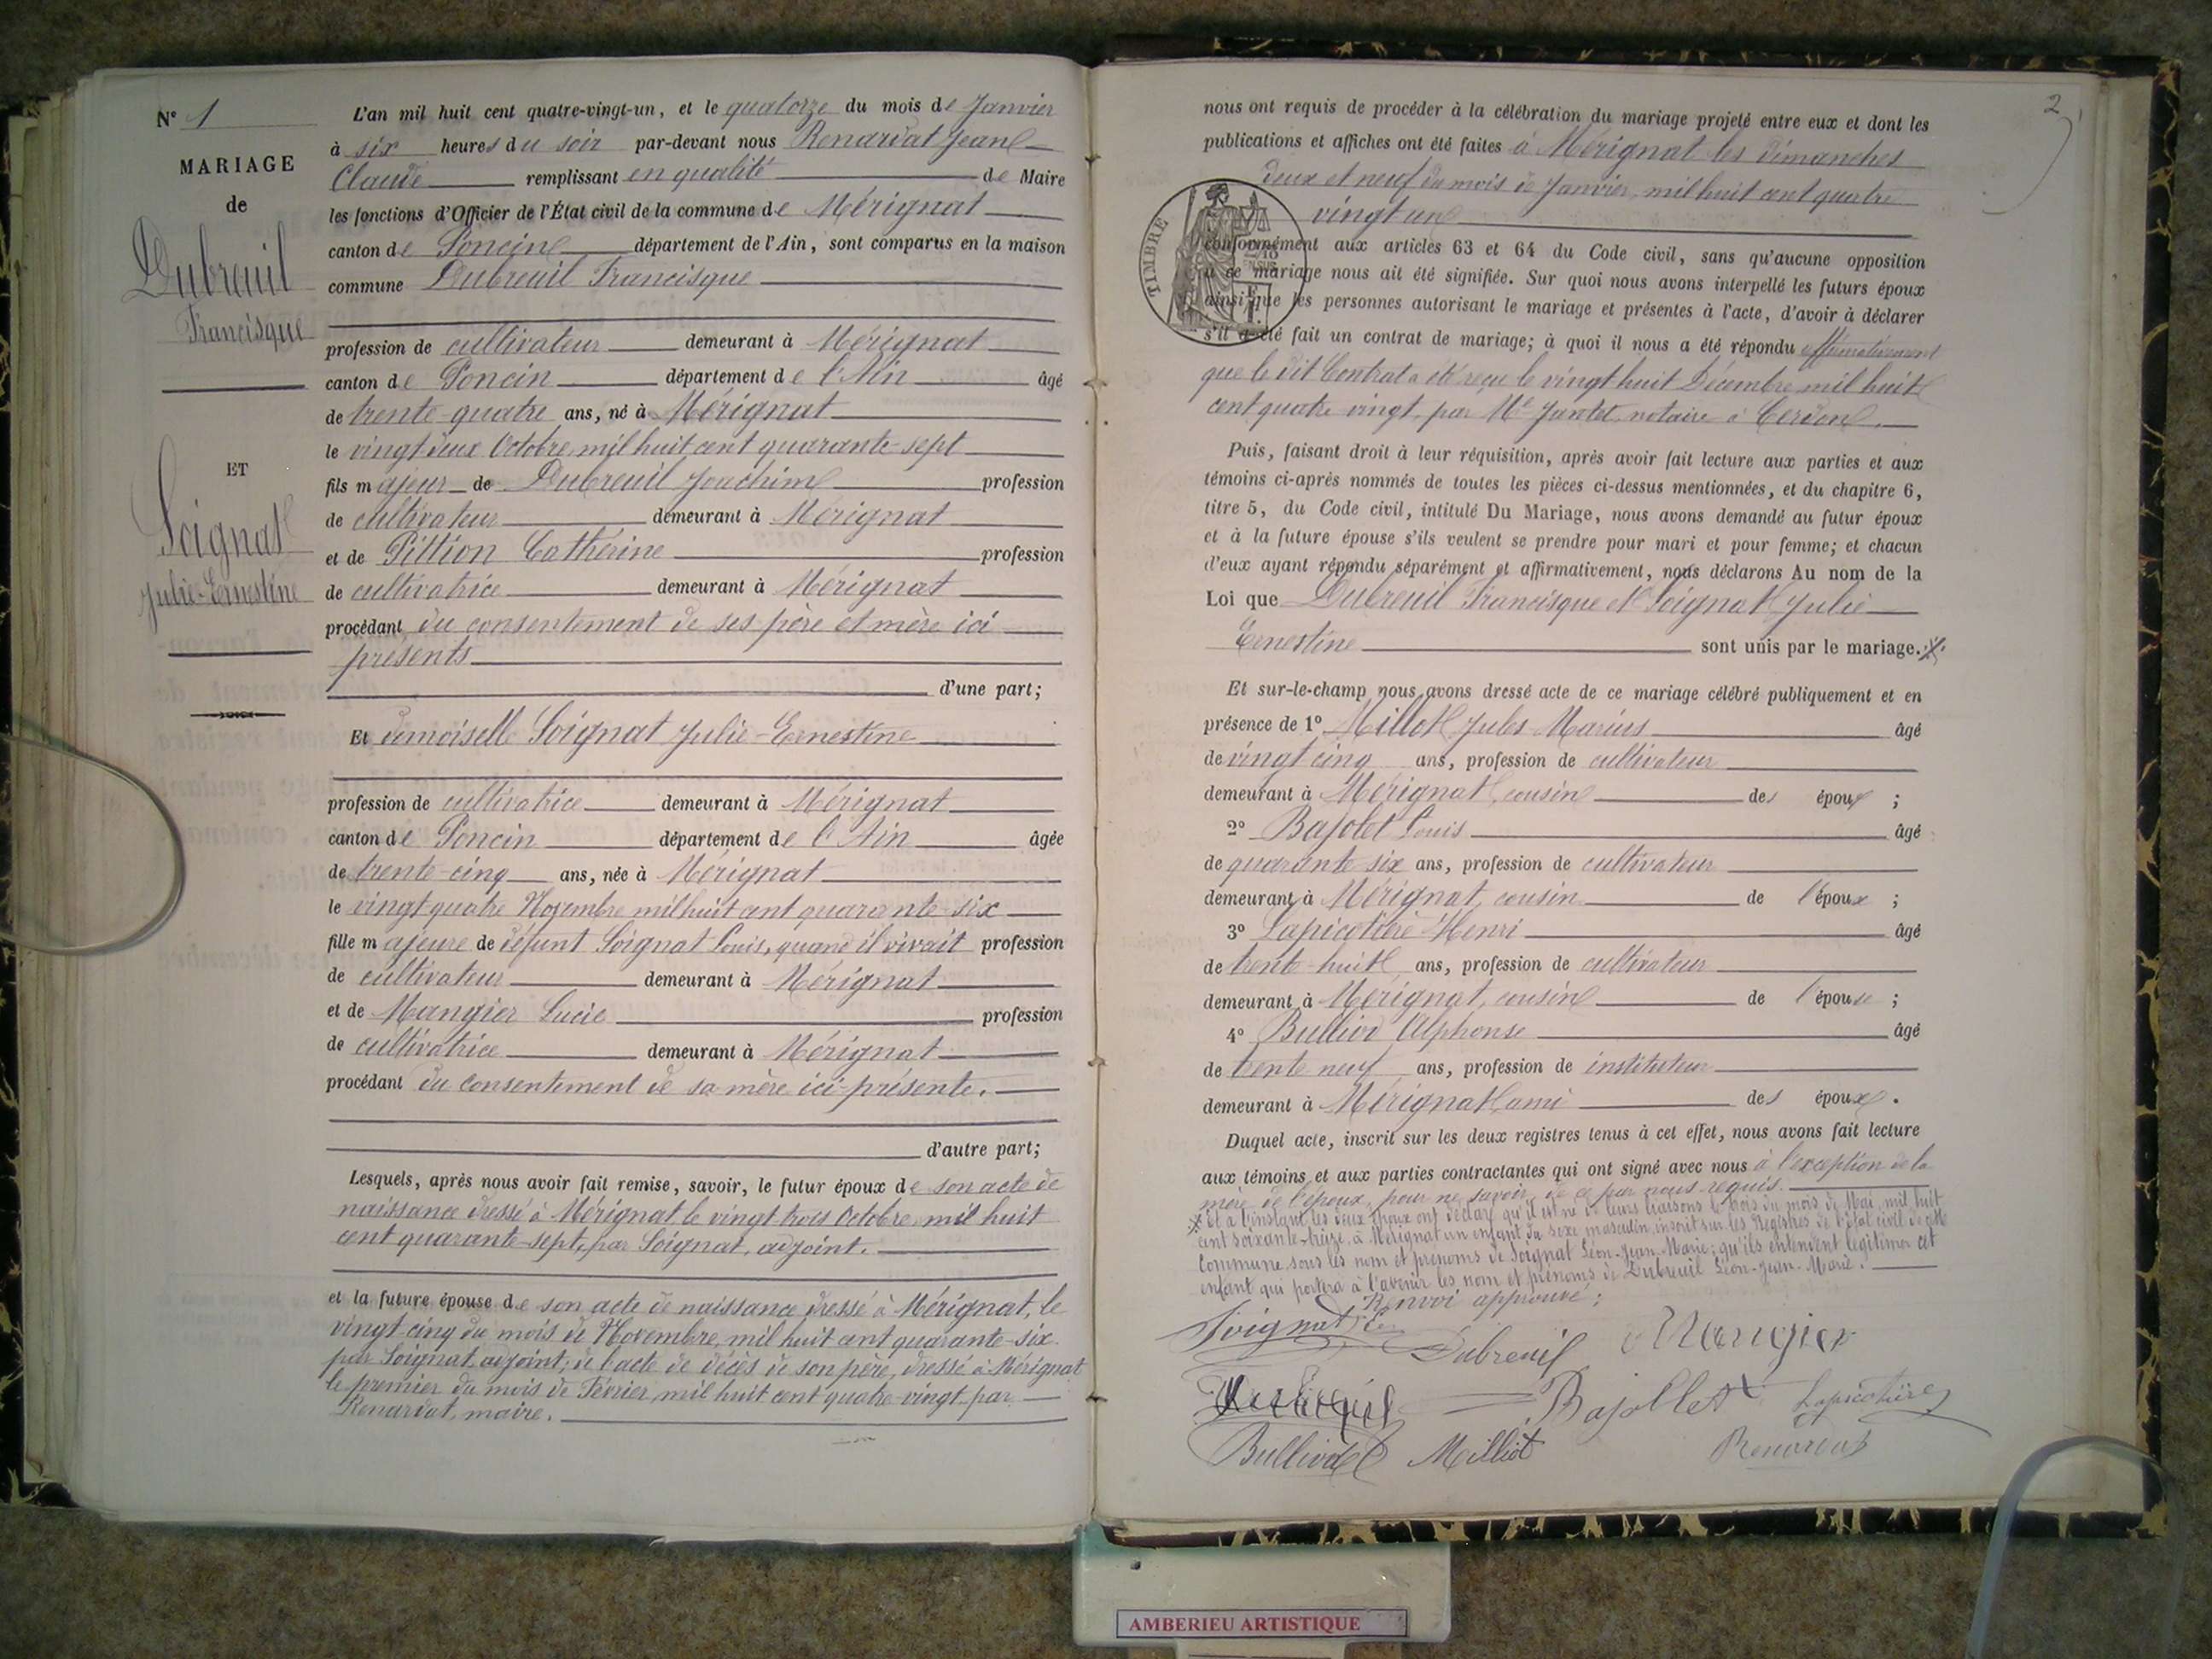 N° 1
MARIAGE
de
Dubreuil
Francisque
ET
Soignat
Julie-Ernestine
L'an mil huit cent quatre-vingt-un, et le quatorze du mois de Janvier
à six heures du soir par-devant nous Renardat Jean
Claude remplissant en qualité de Maire
les fonctions d'Officier de l'État civil de la commune de Mérignat
canton de Poncin département de l'Ain, sont comparus en la maison
commune Dubreuil Francisque
profession de cultivateur demeurant à Mérignat
canton de Poncin département de l'Ain âgé
de trente-quatre ans, né à Mérignat
le vingt deux Octobre mil huit cent quarante-sept
fils majeur de Dubreuil Joachim profession
de cultivateur demeurant à Mérignat
et de Pittion Catherine profession
de cultivatrice demeurant à Mérignat
procédant du consentement de ses père et mère ici
présents
d'une part;
Et demoiselle Soignat Julie-Ernestine
profession de cultivatrice demeurant à Mérignat
canton de Poncin département de l'Ain âgée
de trente-cinq ans, née à Mérignat
le vingt quatre Novembre mil huit cent quarante-six
fille majeure de défunt Soignat Louis, quand il vivait profession
de cultivateur demeurant à Mérignat
et de Mangier Lucie profession
de cultivatrice demeurant à Mérignat
procédant du consentement de sa mère ici présente.
d'autre part;
Lesquels, après nous avoir fait remise, savoir, le futur époux de son acte de
naissance dressé à Mérignat le vingt trois Octobre mil huit
cent quarante-sept, par Soignat, adjoint.
et la future épouse de son acte de naissance dressé à Mérignat, le
vingt cinq du mois de Novembre, mil huit cent quarante-six
par Soignat, adjoint; de l'acte de décès de son père, dressé à Mérignat
le premier du mois de Février, mil huit cent quatre-vingt par
Renardat, maire.
2
nous ont requis de procéder à la célébration du mariage projeté entre eux et dont les
publications et affiches ont été faites à Mérignat les dimanches
deux et neuf du mois de Janvier, mil huit cent quatre
vingt un
TIMBRE
conformément aux articles 63 et 64 du Code civil, sans qu'aucune opposition
à ce mariage nous ait été signifiée. Sur quoi nous avons interpellé les futurs époux
ainsi que les personnes autorisant le mariage et présentes à l'acte, d'avoir à déclarer
s'il a été fait un contrat de mariage; à quoi il nous a été répondu affirmativement
que le dit Contrat a été reçu le vingt huit Décembre mil huit
cent quatre vingt, par Me Jantet, notaire à Cerdon.
Puis, faisant droit à leur réquisition, après avoir fait lecture aux parties et aux
témoins ci-après nommés de toutes les pièces ci-dessus mentionnées, et du chapitre 6,
titre 5, du Code civil, intitulé Du Mariage, nous avons demandé au futur époux
et à la future épouse s'ils veulent se prendre pour mari et pour femme; et chacun
d'eux ayant répondu séparément et affirmativement, nous déclarons Au nom de la
Loi que Dubreuil Francisque et Soignat Julie
Ernestine sont unis par le mariage.
Et sur-le-champ nous avons dressé acte de ce mariage célébré publiquement et en
présence de 1° Milliot Jules Marius âgé
de vingt cinq ans, profession de cultivateur
demeurant à Mérignat, cousin des époux ;
2° Bajolet Louis âgé
de quarante six ans, profession de cultivateur
demeurant à Mérignat, cousin de l'époux ;
3° Lapicotière Henri âgé
de trente-huit ans, profession de cultivateur
demeurant à Mérignat, cousin de l'épouse ;
4° Bulliod Alphonse âgé
de trente neuf ans, profession de instituteur
demeurant à Mérignat ami des époux.
Duquel acte, inscrit sur les deux registres tenus à cet effet, nous avons fait lecture
aux témoins et aux parties contractantes qui ont signé avec nous à l'exception de la
mère de l'époux, pour ne savoir, de ce par nous requis.
Et à l'instant, les deux époux ont déclaré qu'il est né de leurs liaisons le trois du mois de Mai, mil huit
cent soixante-treize, à Mérignat un enfant du sexe masculin, inscrit sur les Registres de l'état civil de cette
Commune sous les nom et prénoms de Soignat Léon-Jean-Marie; qu'ils entendent légitimer cet
enfant qui portera à l'avenir les nom et prénoms de Dubreuil Léon-Jean-Marie.
Renvoi approuvé:
Soignat
Dubreuil Mangier
Bajollet Lapicotière
Bulliod Milliot Renardat
AMBERIEU ARTISTIQUE